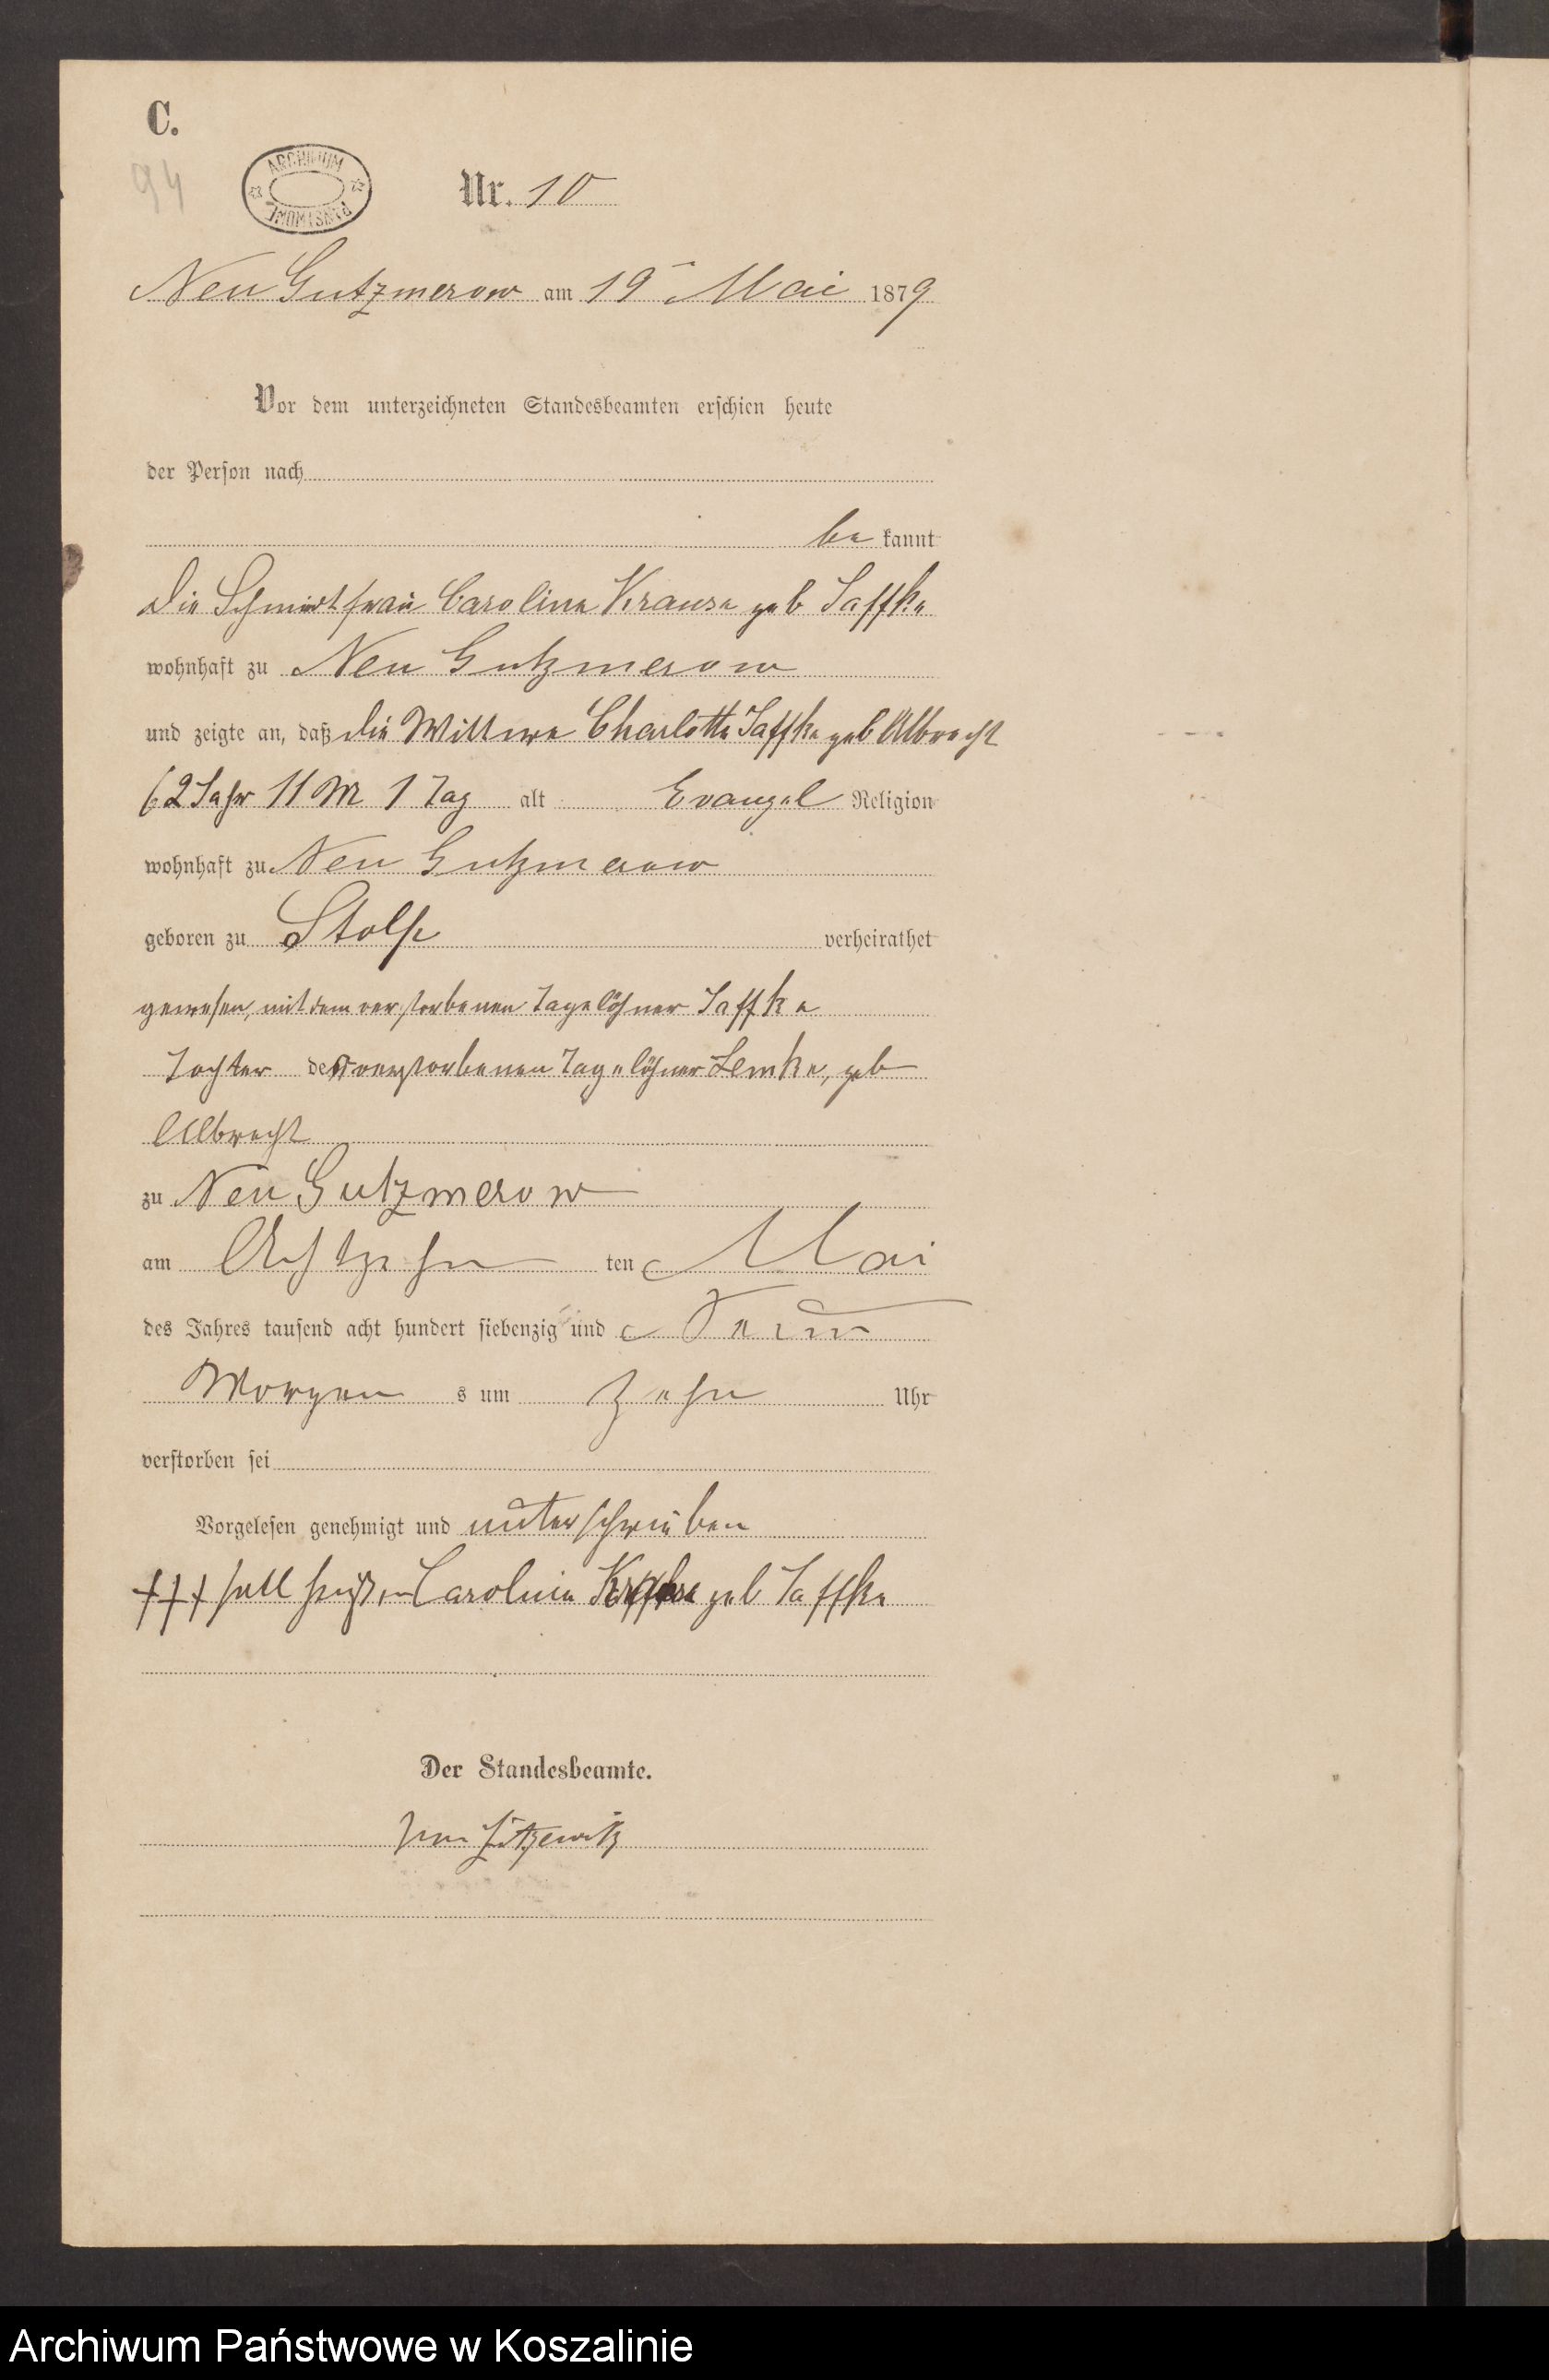 C.
94
ARCHIWUM PAŃSTWOWE
Nr. 10
Neu Gutzmerow am 19 Mai 1879
Vor dem unterzeichneten Standesbeamten erschien heute
der Person nach
be kannt
die Schmidtfrau Caroline Krause geb Jaffke
wohnhaft zu Neu Gutzmerow
und zeigte an, daß die Wittwe Charlotte Jaffke geb Albrecht
62 Jahr 11 M 1 Tag alt Evangel Religion
wohnhaft zu Neu Gutzmerow
geboren zu Stolp verheirathet
gewesen, mit dem verstorbenen Tagelöhner Jaffke
Tochter der verstorbenen Tagelöhner Lemke, geb
Albrecht
zu Neu Gutzmerow
am Achtzehn ten Mai
des Jahres tausend acht hundert siebenzig und Neun
Morgen s um Zehn Uhr
verstorben sei
Vorgelesen genehmigt und unterschrieben
+++ soll heißen Caroline Krause geb Jaffke
Der Standesbeamte.
von Zitzewitz
Archiwum Państwowe w Koszalinie